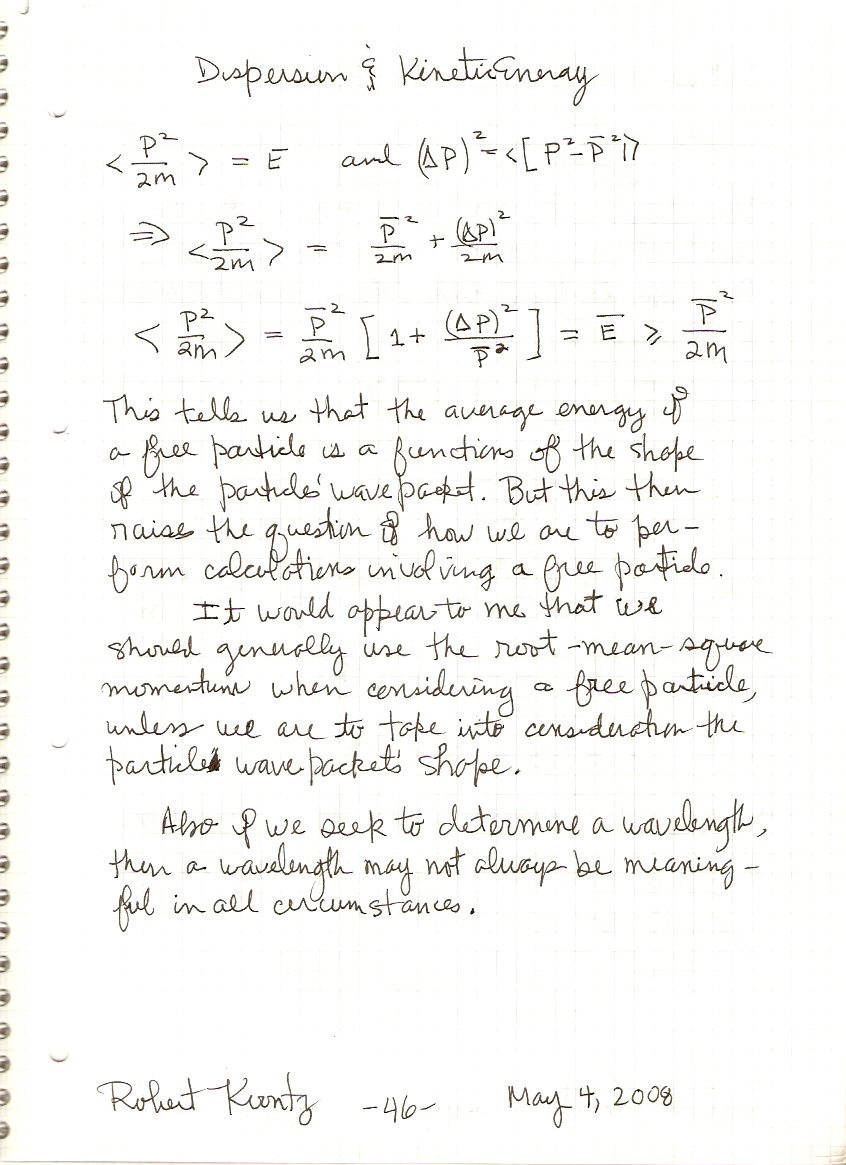 Dispersion & Kinetic Energy
< P²/2m > = E̅ and (ΔP)² = <[ P² - P̅²]>
⇒ < P²/2m > = P̅²/2m + (ΔP)²/2m
< P²/2m > = P̅²/2m [ 1 + (ΔP)²/P̅² ] = E̅ ≥ P̅²/2m
This tells us that the average energy of
a free particle is a functions of the shape
of the particles' wave packet. But this then
raises the question of how we are to per-
form calculations involving a free particle.
It would appear to me that we
should generally use the root-mean-square
momentum when considering a free particle,
unless we are to take into consideration the
particles wave packet's shape.
Also if we seek to determine a wavelength,
then a wavelength may not always be meaning-
ful in all circumstances.
Robert Kuntz -46- May 4, 2008